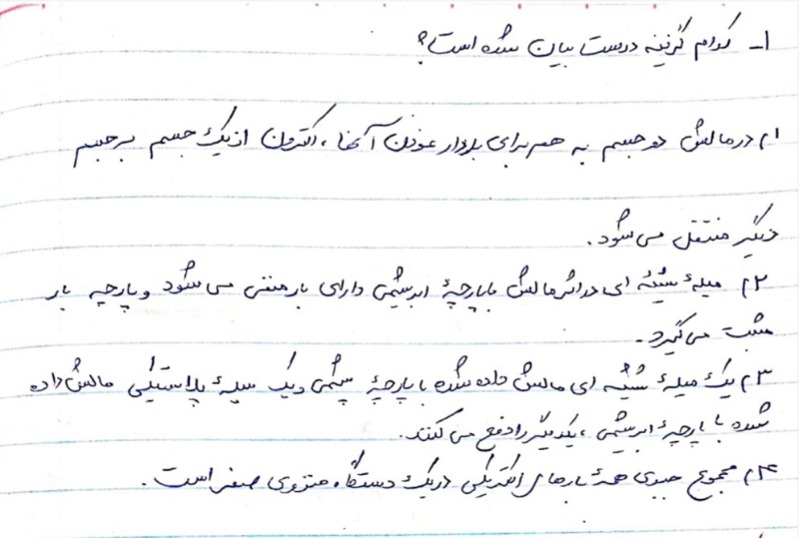 ۱- کدام گزینه درست بیان شده است؟
۱) در مالش دو جسم به هم برای باردار نمودن آنها، الکترون از یک جسم بر جسم
دیگر منتقل می شود.
۲) میلهٔ شیشه ای در اثر مالش با پارچهٔ ابریشمی دارای بار منفی می شود و پارچه بار
مثبت می گیرد.
۳) یک میلهٔ شیشه ای مالش داده شده با پارچهٔ پشمی و یک میلهٔ پلاستیکی مالش داده
شده با پارچهٔ ابریشمی، یکدیگر را دفع می کنند.
۴) مجموع جبری همهٔ بارهای الکتریکی در یک دستگاه منزوی صفر است.